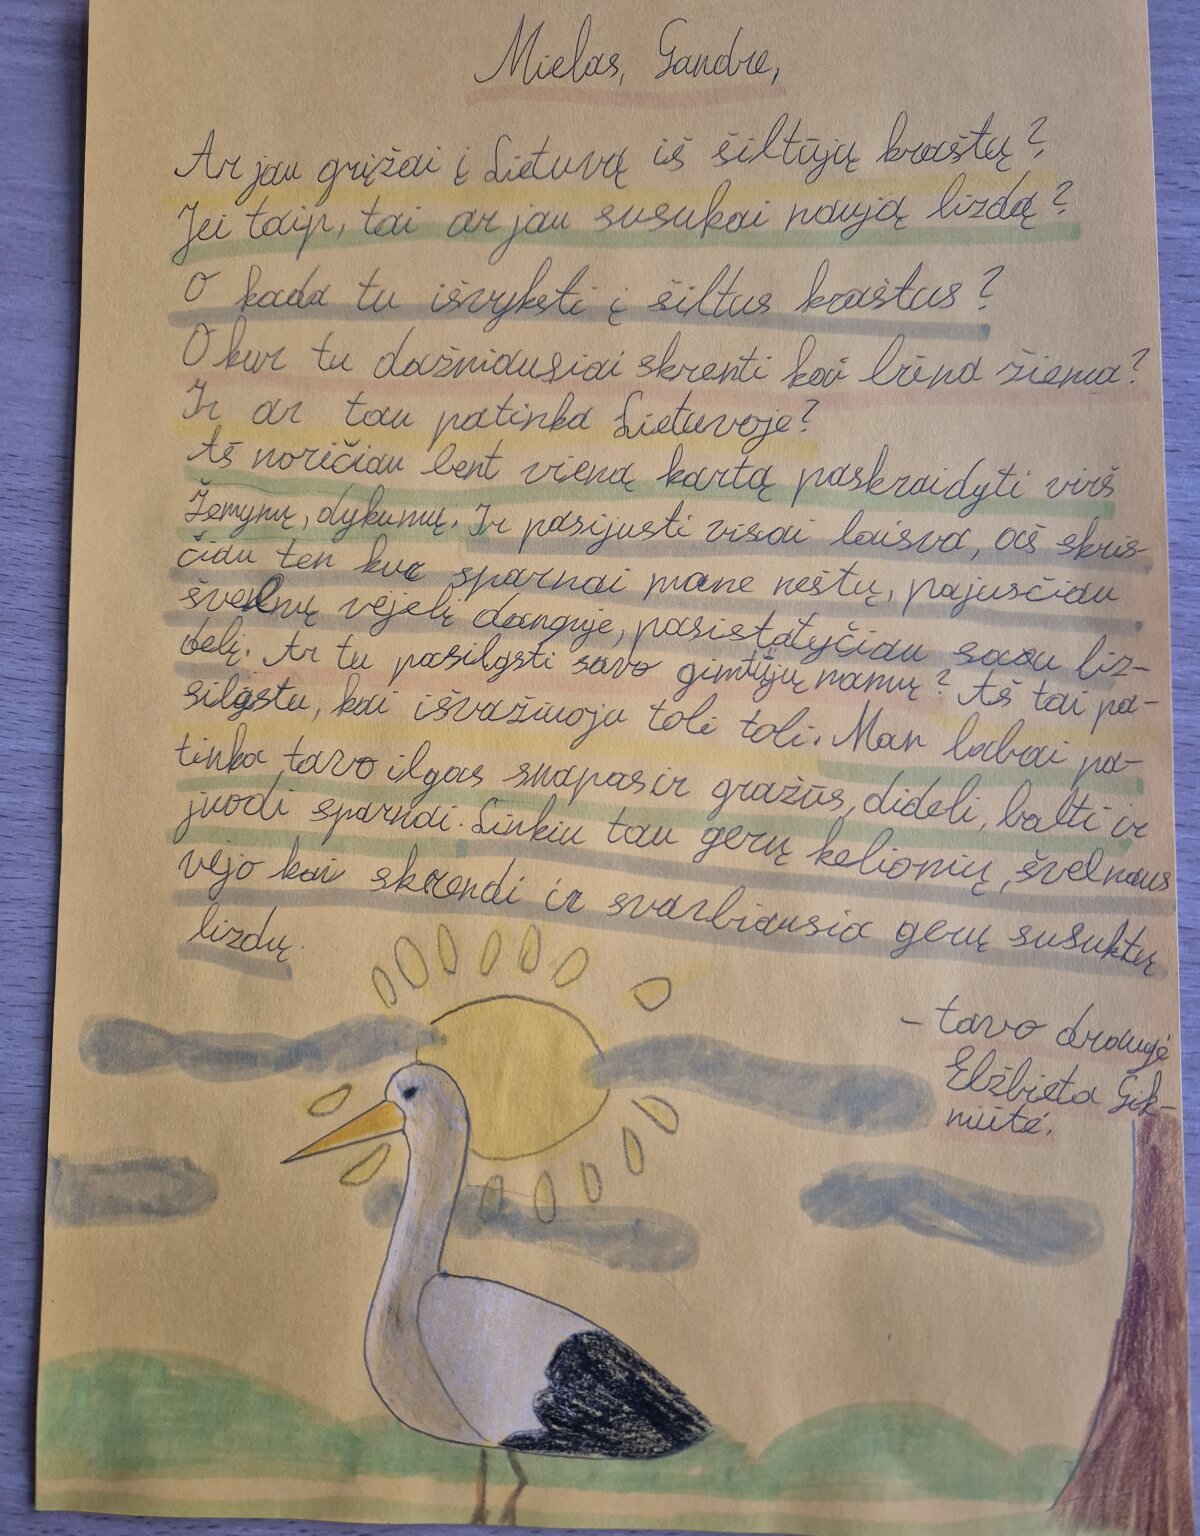 Mielas, Gandre,
Ar jau grįžai į Lietuvą iš šiltųjų kraštų?
Jei taip, tai ar jau susukai naują lizdą?
O kada tu išvyksti į šiltus kraštus?
O kur tu dažniausiai skrenti kai būna žiema?
Ir ar tau patinka Lietuvoje?
Aš noričiau bent vieną kartą paskraidyti virš
Žemynų, dykumų. Ir pasijusti visai laisva, aš skris-
čiau ten kur sparnai mane neštų, pajusčiau
švelnų vėjelį danguje, pasistatyčiau savu liz-
delį. Ar tu pasilgsti savo gimtųjų namų? Aš tai pa-
silgstu, kai išvažiuoju toli toli. Man labai pa-
tinka tavo ilgas snapas ir gražūs, dideli, balti ir
juodi sparnai. Linkiu tau gerų kelionių, švelnaus
vėjo kai skrendi ir svarbiausia gerų susuktų
lizdų.
- tavo draugė
Elžbieta Gik-
niūtė.